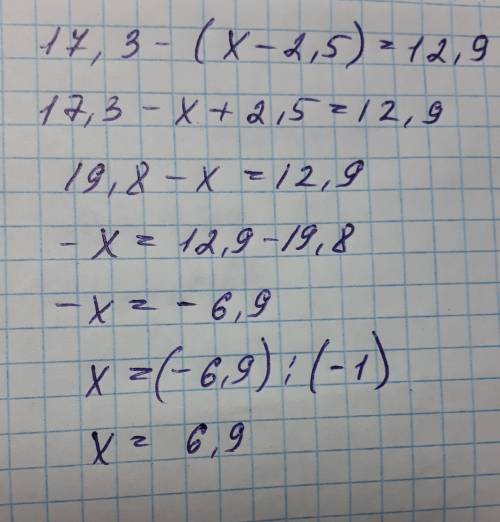 17,3 - (x - 2,5) = 12,9
17,3 - x + 2,5 = 12,9
19,8 - x = 12,9
- x = 12,9 - 19,8
- x = - 6,9
x = (- 6,9) : (- 1)
x = 6,9